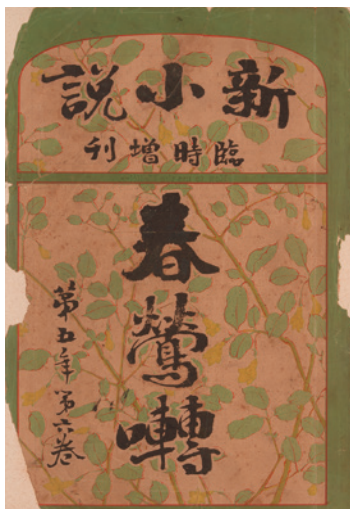 新小説
臨時増刊
春鶯囀
第五年第六巻